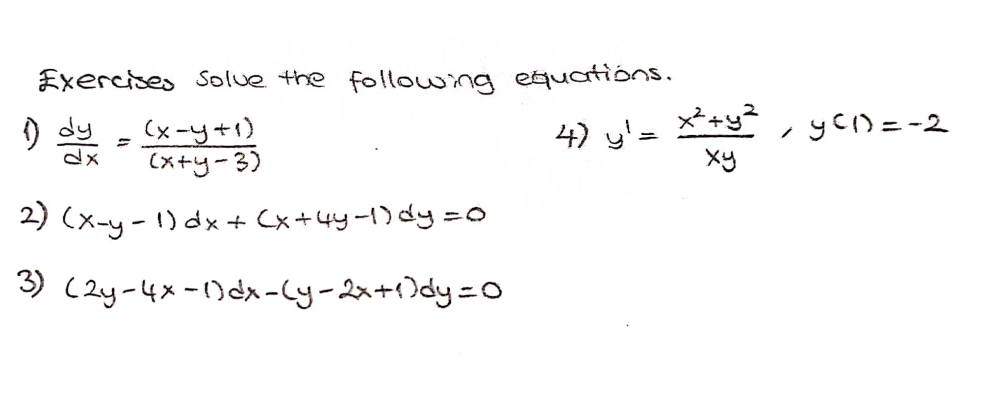 Exercises Solve the following equations.
1) dy/dx = (x-y+1)/(x+y-3)
2) (x-y-1)dx + (x+4y-1)dy=0
3) (2y-4x-1)dx-(y-2x+1)dy=0
4) y' = x²+y²/xy , y(1)=-2